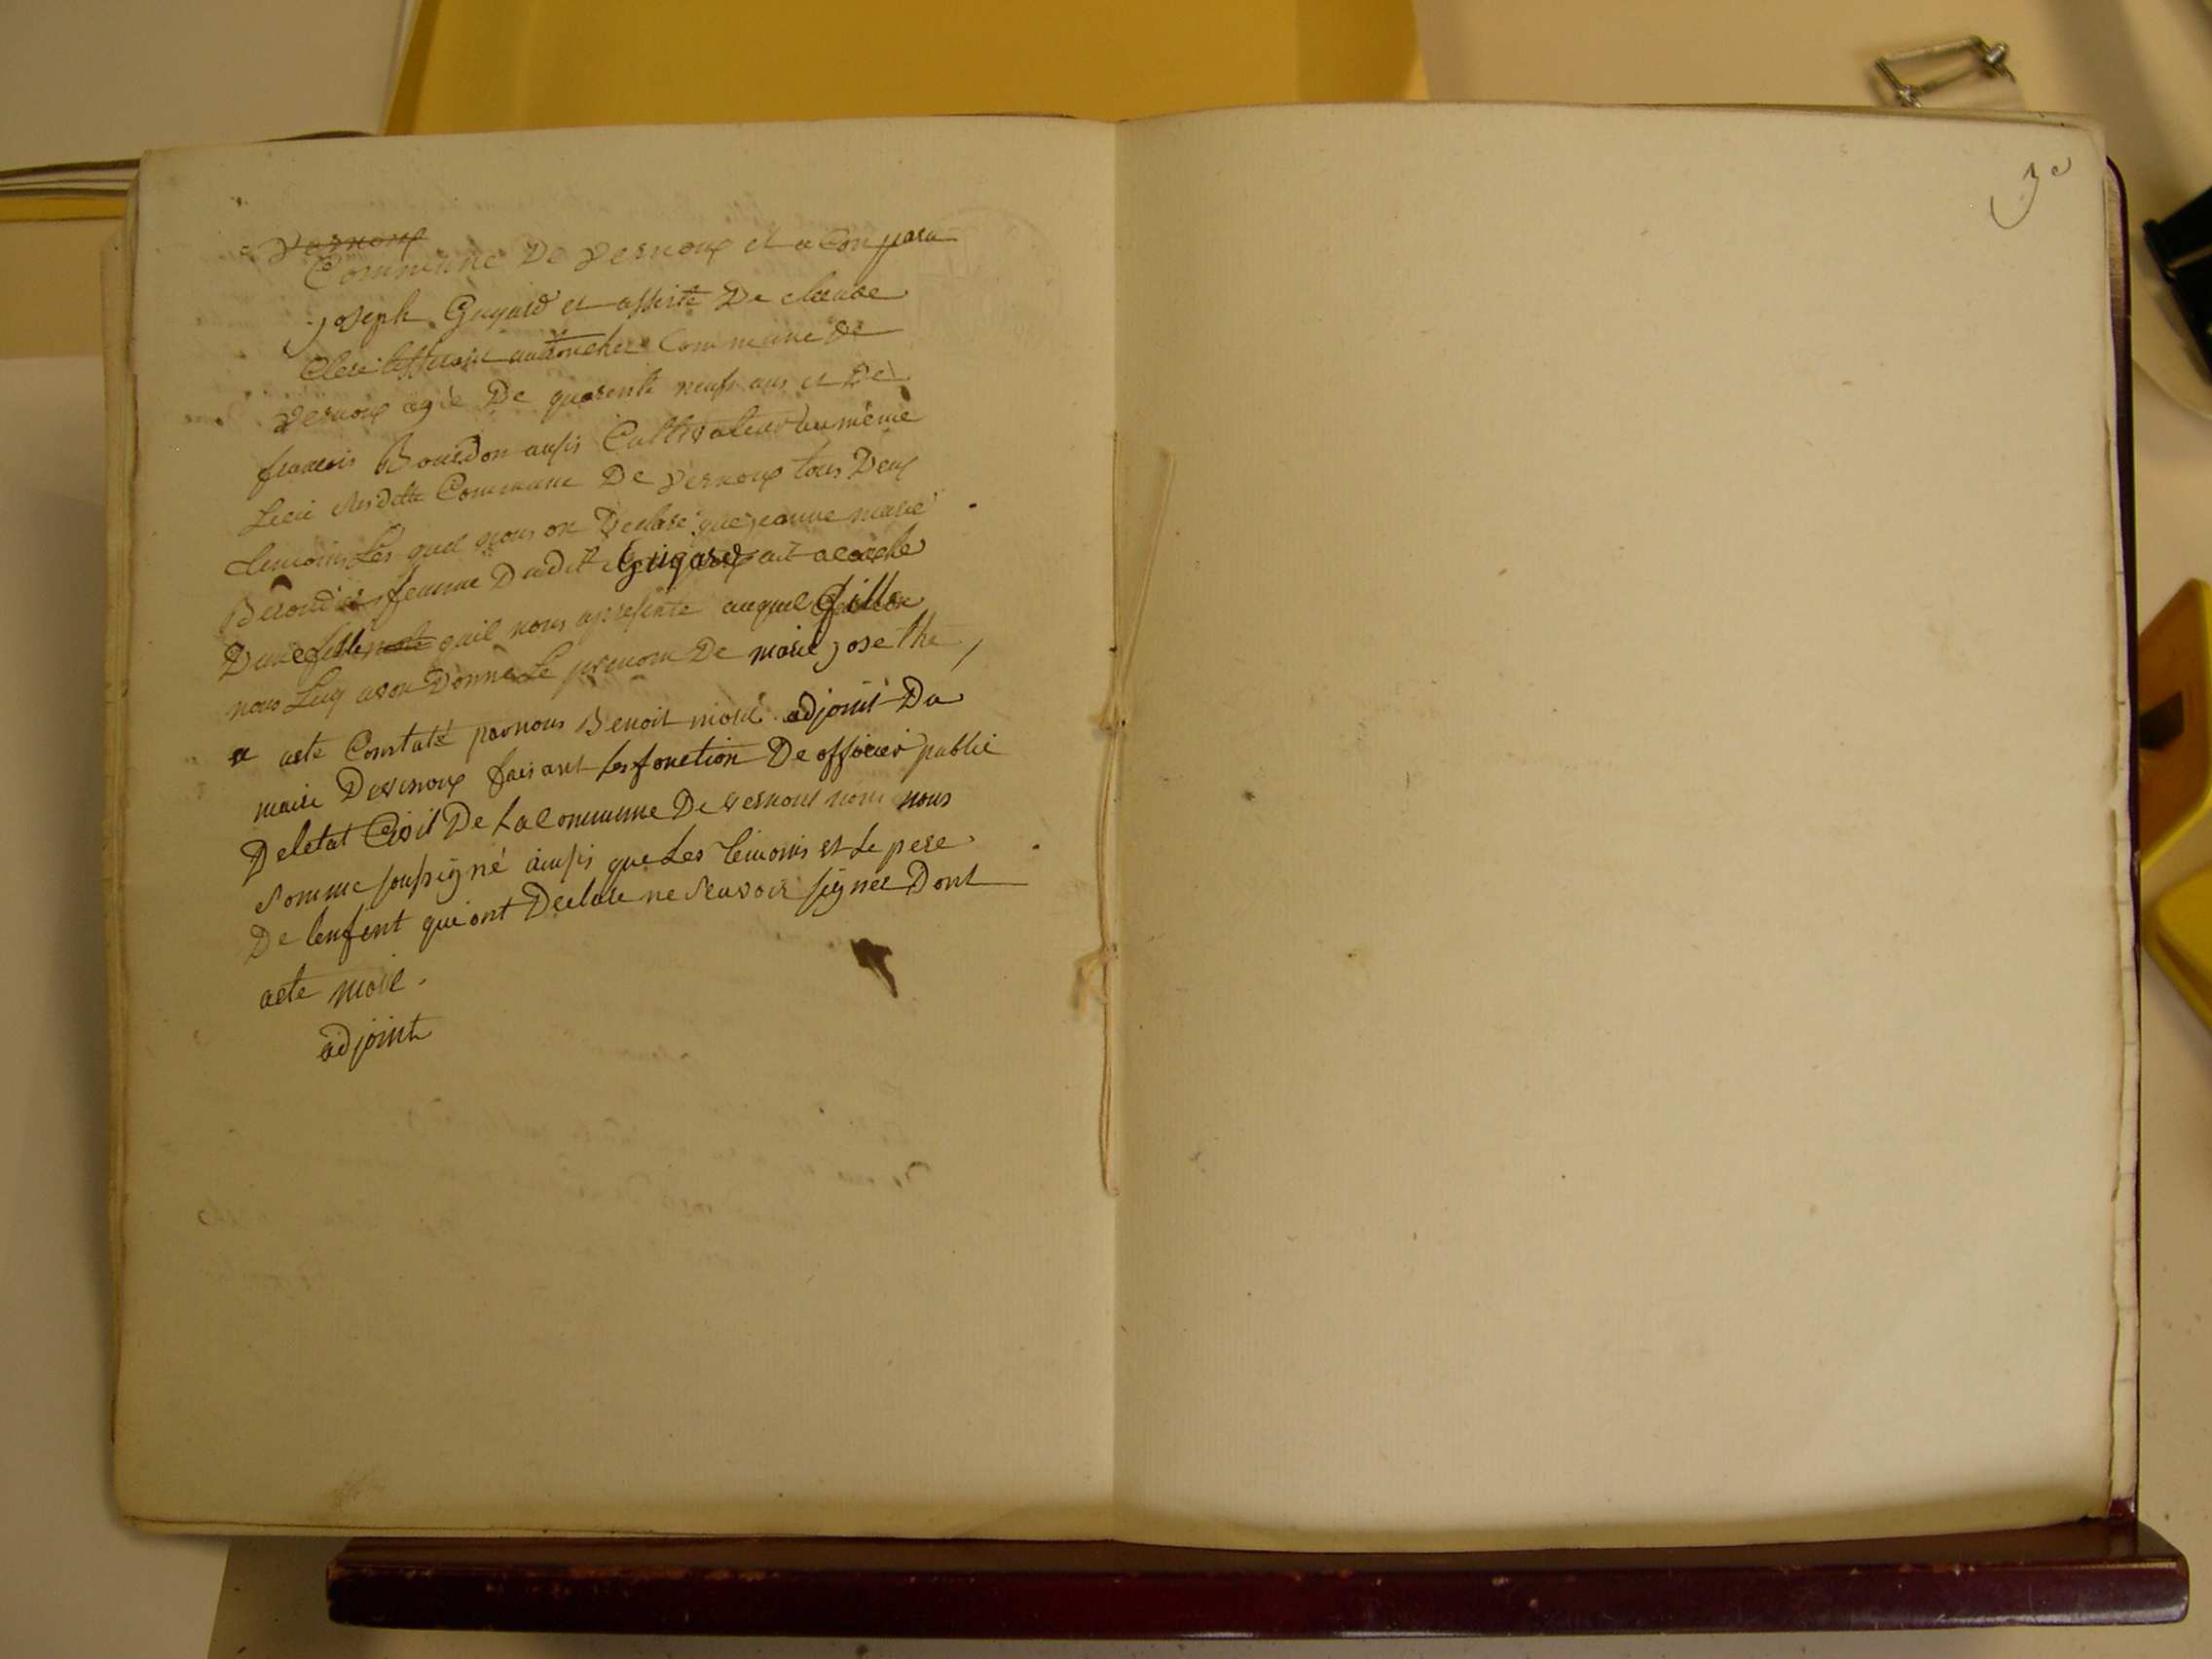 Vernoux
Commune De Vernoux et a Comparu
joseph Guyard et assisté De claude
Clere Commune De
Vernoux agé De quarente neufs ans et De
francois Bourdon aussis Cultivateur au même
Lieu susditte Commune De Vernoux tous Deux
temoins Les quel nous on Declaré que jeanne marie
femme Dudit Guigard ait acouche
Dune fille quil nous apresente auquel fille
nous Luy avon Donné Le prenom De marie josethe
acte Constaté par nous Benoit morel adjoint Du
maire De vernoux faisant Les fonction De officier public
De letat Civil De La Commune De vernoux nous
somme soussigné ainsis que Les temoins et Le pere
De lenfent qui ont Declare ne scavoir signer Dont
acte morel.
adjoint